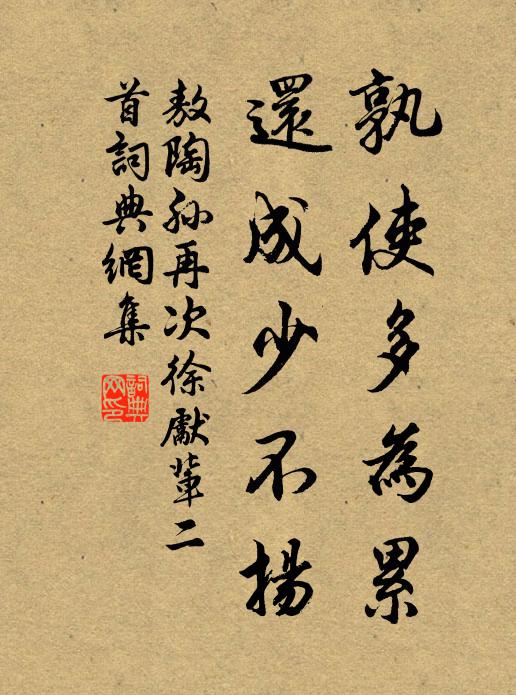 孰使多為累
還成少不揚
敖陶孫再次徐獻輩二
首詞典網集
詞典
网印